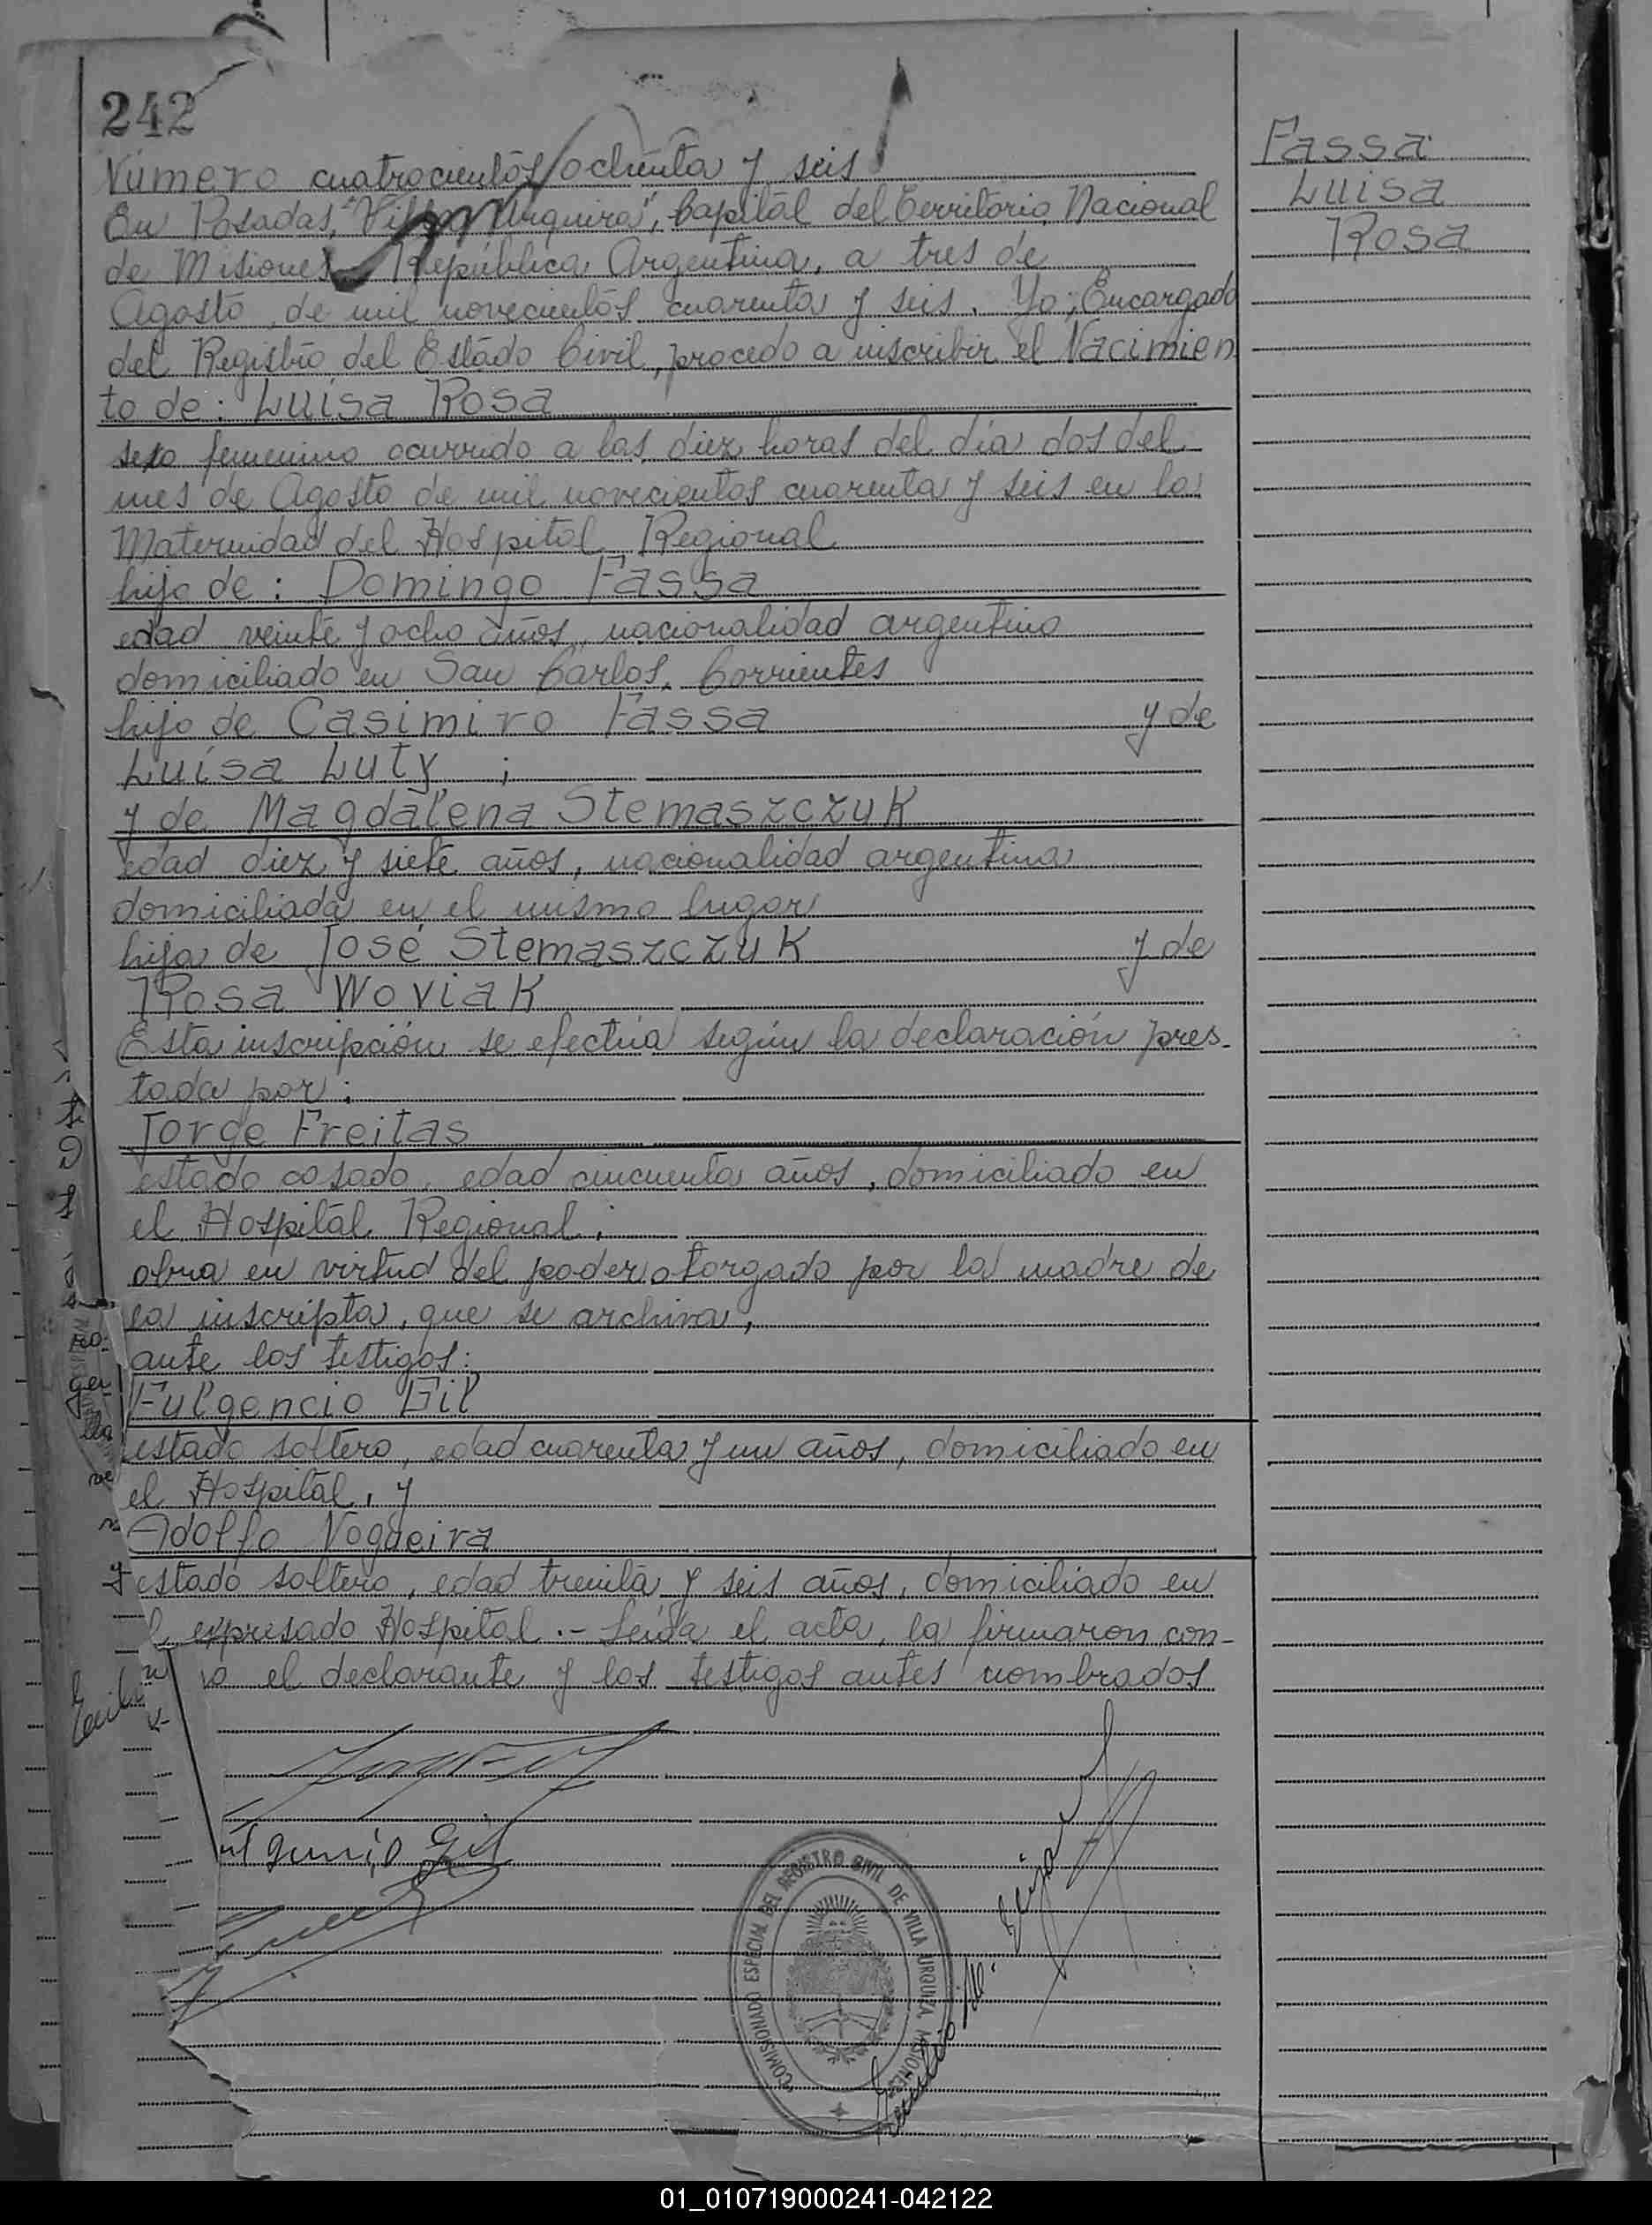 242
Número cuatrocientos ochenta y seis
En Posadas, "Villa Urquiza", Capital del Territorio Nacional
de Misiones República Argentina, a tres de
Agosto, de mil novecientos cuarenta y seis. Yo, Encargado
del Registro del Estado Civil, procedo a inscribir el Nacimien
to de: Luisa Rosa
sexo femenino ocurrido a las diez horas del día dos del
mes de Agosto de mil novecientos cuarenta y seis en la
Maternidad del Hospital Regional
hija de: Domingo Fassa
edad veinte y ocho años, nacionalidad argentino
domiciliado en San Carlos, Corrientes
hijo de Casimiro Fassa y de
Luisa Luty ;
y de Magdalena Stemaszczuk
edad diez y siete años, nacionalidad argentina
domiciliada en el mismo lugar
hija de José Stemaszczuk y de
Rosa Woviak
Esta inscripción se efectúa según la declaración pres-
tada por:
Jorge Freitas
estado casado, edad cincuenta años, domiciliado en
el Hospital Regional;
obra en virtud del poder otorgado por la madre de
la inscripta, que se archiva,
ante los testigos:
Fulgencio Gil
estado soltero, edad cuarenta y un años, domiciliado en
el Hospital, y
Adolfo Nogueira
estado soltero, edad treinta y seis años, domiciliado en
expresado Hospital.- Leída el acta, la firmaron con-
el declarante y los testigos antes nombrados
Gil
COMISIONADO ESPECIAL DEL REGISTRO CIVIL DE VILLA URQUIZA, MISIONES
Fassa
Luisa
Rosa
01_010719000241-042122